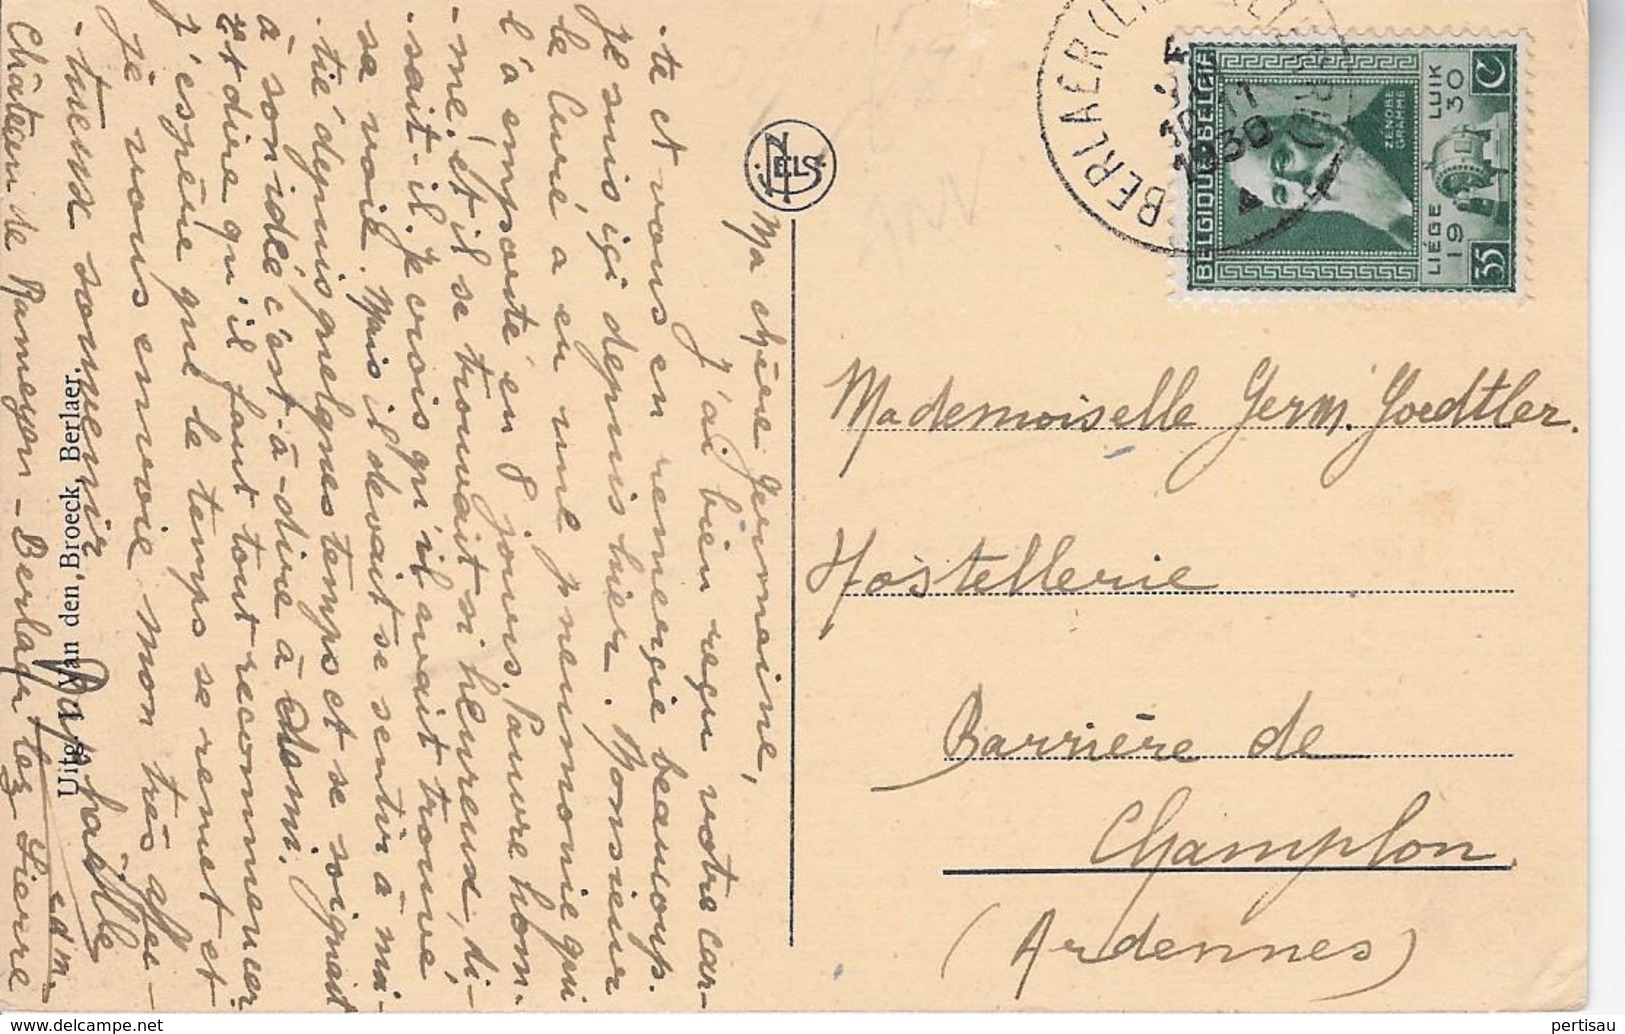 Ma chère Germaine,
J'ai bien reçu votre car-
-te et vous en remercie beaucoup.
Je suis içi depuis hier. Monsieur
le Curé a eu une pneumonie qui
l'à emporté en 9 jours. Pauvre hom-
-me! et il se trouvait si heureux, di-
-sait-il. Je crois qu'il avait trouvé
sa voie. Mais il devait se sentir à moi-
-tié depuis quelques temps et se soignait
à son idée c'est-à-dire à demi.
Et dire qu'il faut tout recommencer
J'espère que le temps se remet et
je vous envoie mon très affec-
-tueux souvenir.
Raphaëlle
Château de Rameyen - Berlaer lez Lierre
Uitg. Van den Broeck, Berlaer.
NELS
BERLAER (LIER)
10-11
1930
BELGIQUE-BELGIË
ZÉNOBE
GRAMME
LIÉGE LUIK
19 30
35 C
Mademoiselle Germ. Goedtler.
Hostellerie
Barrière de
Champlon
(Ardennes)
pertisau
www.delcampe.net